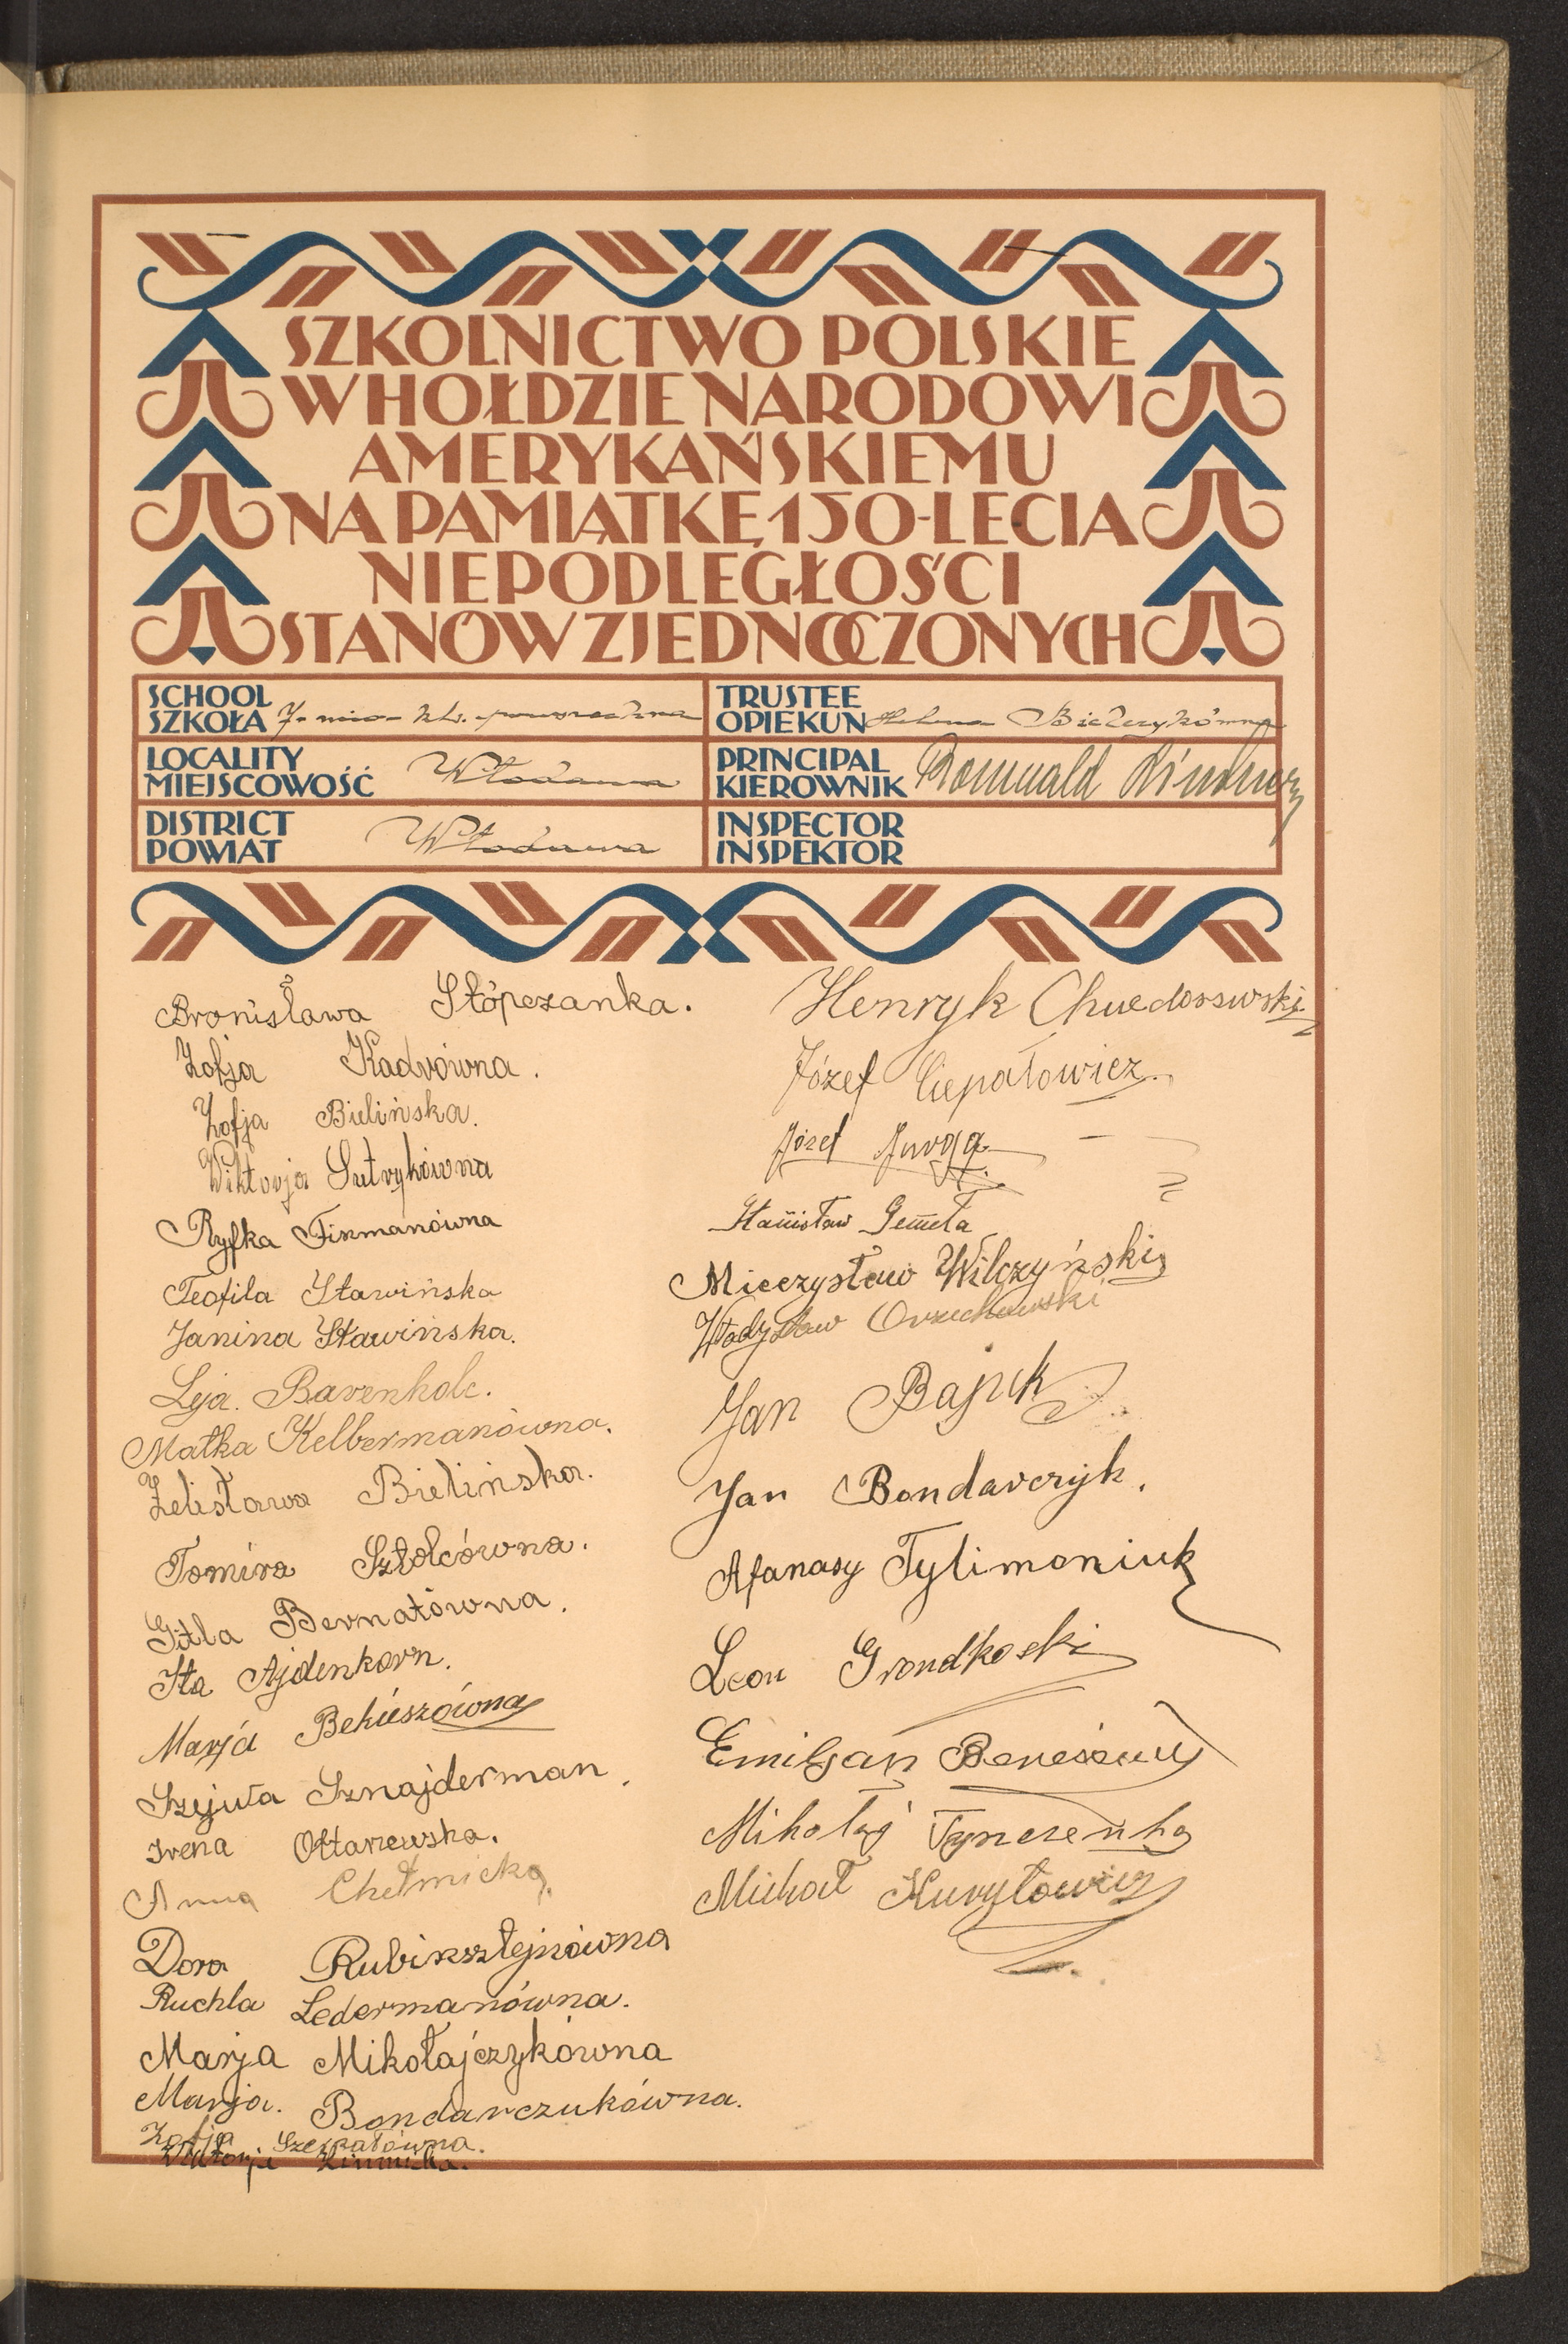 SZKOLNICTWO POLSKIE
W HOŁDZIE NARODOWI
AMERYKAŃSKIEMU
NA PAMIĄTKĘ 150-LECIA
NIEPODLEGŁOŚCI
STANÓW ZJEDNOCZONYCH
SCHOOL
SZKOŁA 7-mio-kl. powszechna
TRUSTEE
OPIEKUN Helena
LOCALITY
MIEJSCOWOŚĆ Włodawa
PRINCIPAL
KIEROWNIK Romuald
DISTRICT
POWIAT Włodawa
INSPECTOR
INSPEKTOR
Bronisława Słópczanka.
Zofja Kadrówna.
Zofja Bielińska.
Wiktorja Sutrykówna
Ryfka Fixmanówna
Teofila Sławińska
Janina Sławińska.
Leja. Barenholc.
Małka Kelbermanówna.
Żelisława Bielińska.
Tomira Sztolcówna.
Gitla Bernatówna.
Ita Ajdenkorn.
Marja Bekieszówna
Szejwa Sznajderman.
Irena Ołtarzewska.
Anna Chełmicka.
Dora Rubinsztejnówna
Ruchla Ledermanówna.
Marja Mikołajczykówna
Marja. Bondarczukówna.
Zofja Szepatówna.
Wiktorja
Henryk
Józef Ciepałowicz.
Józef
Stanisław Gemeła
Mieczysław Wilczyński
Władysław Orzechowski
Jan Bajuk
Jan Bondarczyk.
Afanasy Tylimoniuk
Leon Grondkoski
Emiljan
Mikołaj Tynczenko
Michał Kuryłowicz